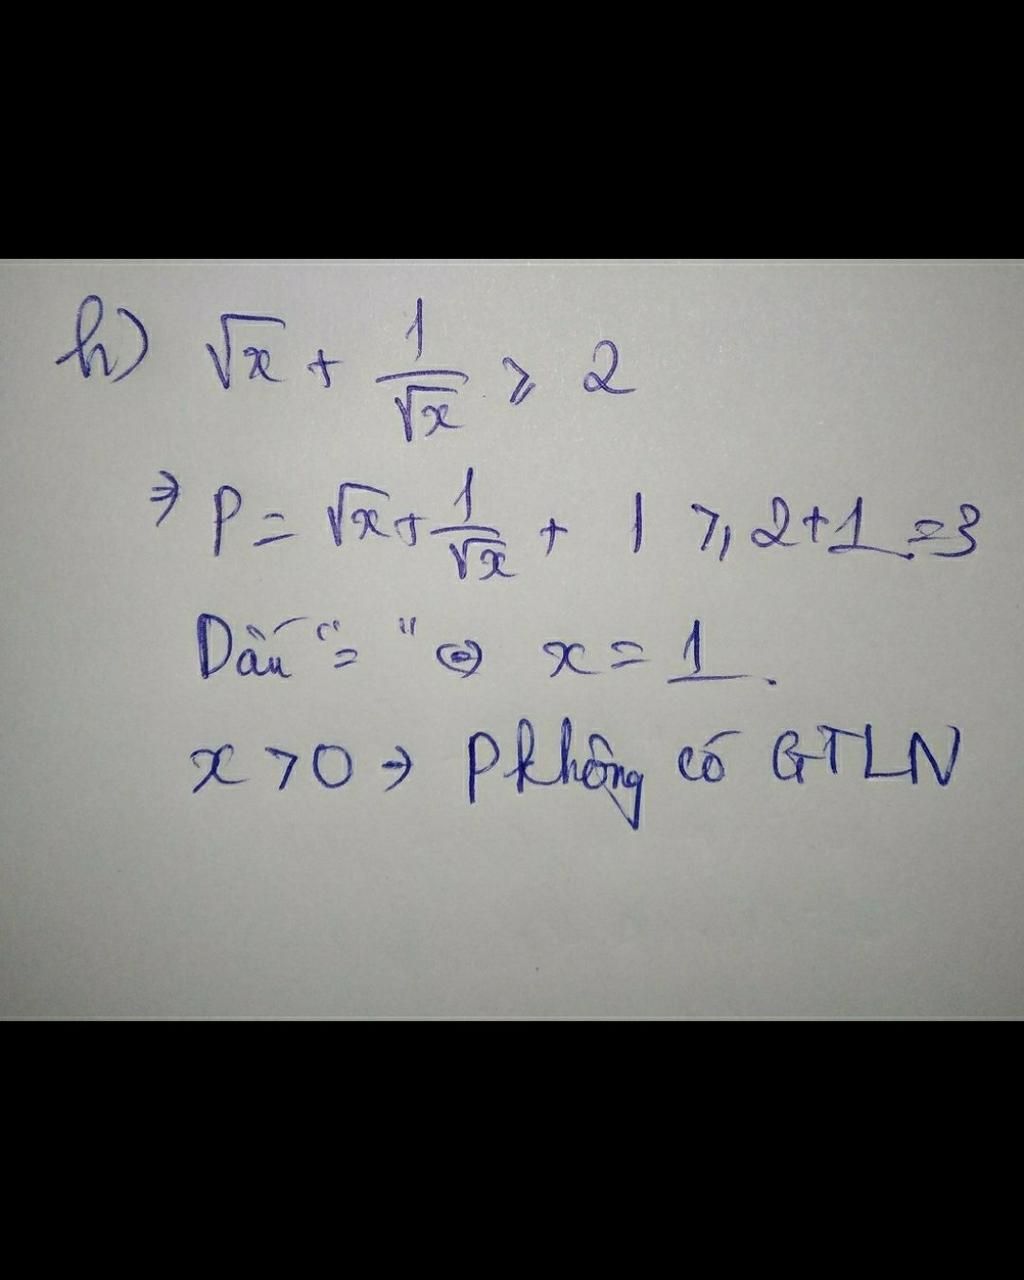 h) √x + 1/√x ≥ 2
⇒ P = √x + 1/√x + 1 ≥ 2+1 = 3
Dấu "=" ⇔ x = 1.
x > 0 → P không có GTLN